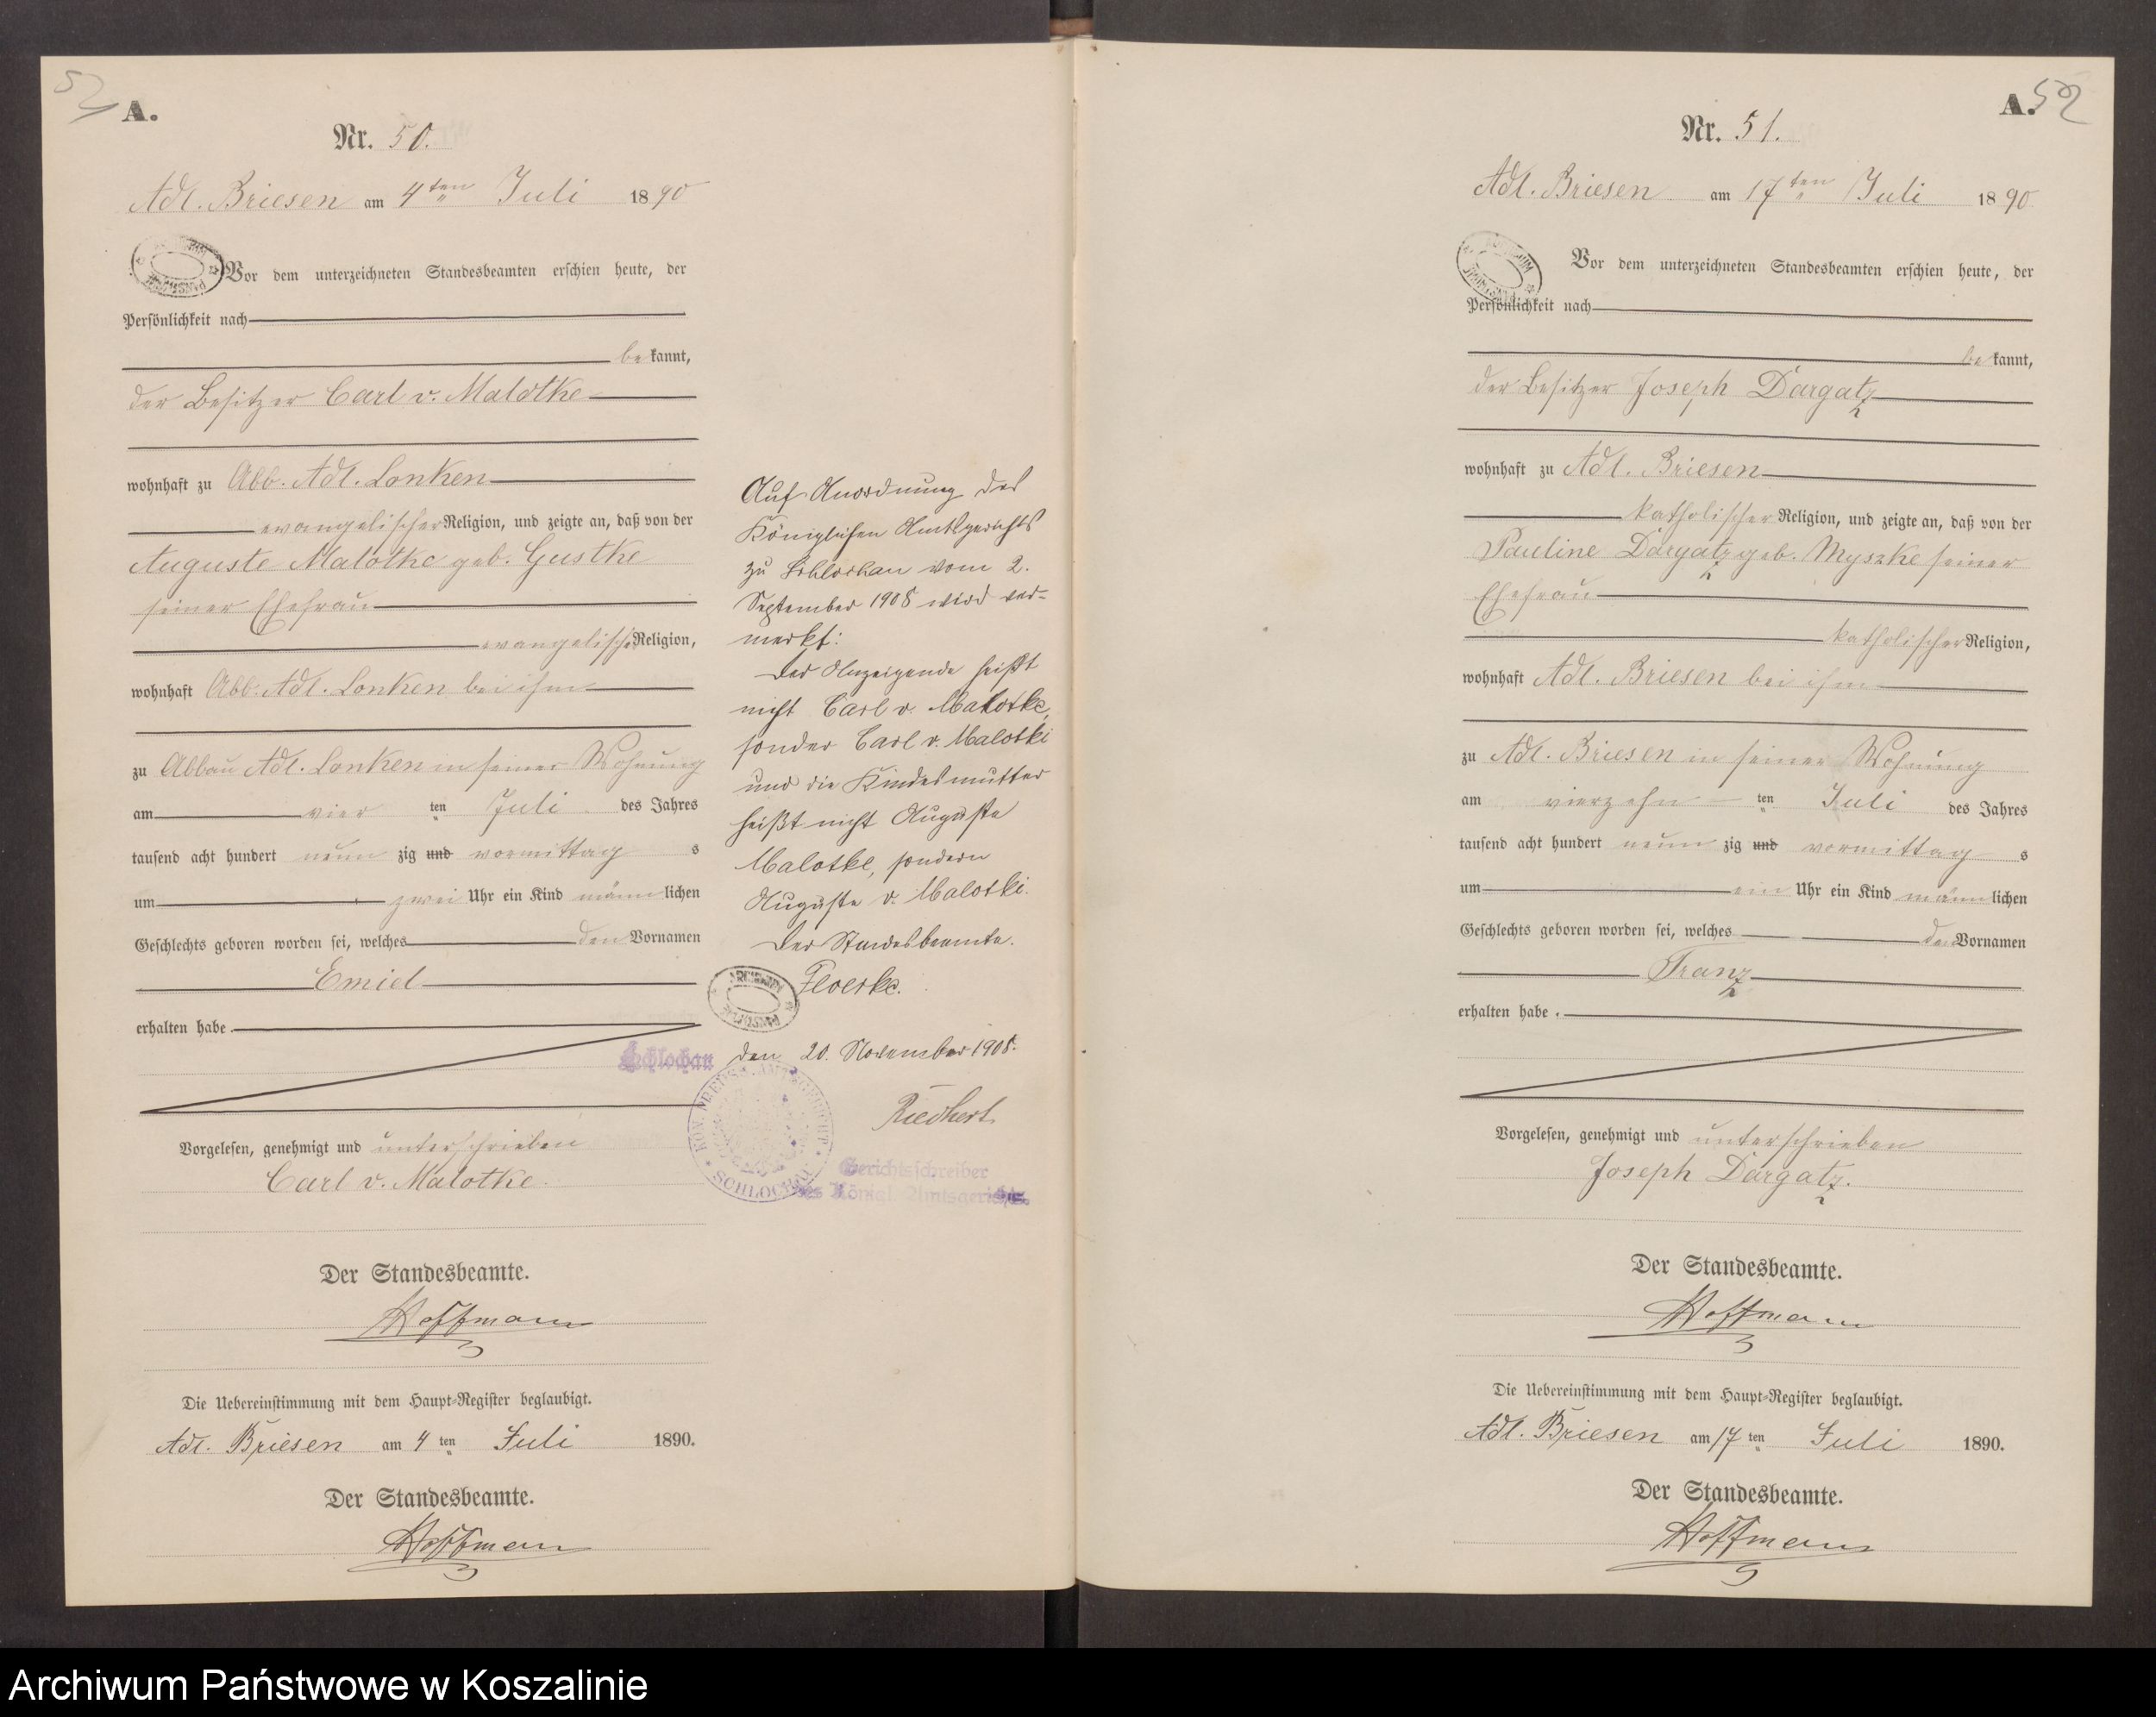 52
A.
Nr. 50.
Adl. Briesen am 4ten Juli 1890
Vor dem unterzeichneten Standesbeamten erschien heute, der
Persönlichkeit nach
be kannt,
der Besitzer Carl v. Malotke
wohnhaft zu Abb. Adl. Lonken
evangelischer Religion, und zeigte an, daß von der
Auguste Malotke geb. Gustke
seiner Ehefrau
evangelischer Religion,
wohnhaft Abb. Adl. Lonken bei ihm
zu Abbau Adl. Lonken in seiner Wohnung
am vier ten Juli des Jahres
tausend acht hundert neun zig und vormittag s
um zwei Uhr ein Kind männ lichen
Geschlechts geboren worden sei, welches den Vornamen
Emiel
erhalten habe.
Vorgelesen, genehmigt und unterschrieben
Carl v. Malotke.
Der Standesbeamte.
Hoffmann
Die Uebereinstimmung mit dem Haupt-Register beglaubigt.
Adl. Briesen am 4 ten Juli 1890.
Der Standesbeamte.
Hoffmann
Auf Anordnung des
Königlichen Amtsgerichts
zu Schlochau vom 2.
September 1908 wird ver-
merkt:
Der Anzeigende heißt
nicht Carl v. Malotke,
sonder Carl v. Malotki
und die Kindesmutter
heißt nicht Auguste
Malotke, sondern
Auguste v. Malotki.
Der Standesbeamte.
Floerke.
ARCHIWUM
Schlochau den 20. November 1908.
KÖN. PREUSS. AMTSGERICHT
SCHLOCHAU
Riedhert
Gerichtsschreiber
des Königl. Amtsgerichts.
A. 52
Nr. 51.
Adl. Briesen am 17ten Juli 1890
Vor dem unterzeichneten Standesbeamten erschien heute, der
Persönlichkeit nach
be kannt,
der Besitzer Joseph Dargatz
wohnhaft zu Adl. Briesen
katholischer Religion, und zeigte an, daß von der
Pauline Dargatz geb. Myszke seiner
Ehefrau
katholischer Religion,
wohnhaft Adl. Briesen bei ihm
zu Adl. Briesen in seiner Wohnung
am vierzehn ten Juli des Jahres
tausend acht hundert neun zig und vormittag s
um ein Uhr ein Kind männ lichen
Geschlechts geboren worden sei, welches den Vornamen
Franz
erhalten habe.
Vorgelesen, genehmigt und unterschrieben
Joseph Dargatz.
Der Standesbeamte.
Hoffmann
Die Uebereinstimmung mit dem Haupt-Register beglaubigt.
Adl. Briesen am 17 ten Juli 1890.
Der Standesbeamte.
Hoffmann
Archiwum Państwowe w Koszalinie